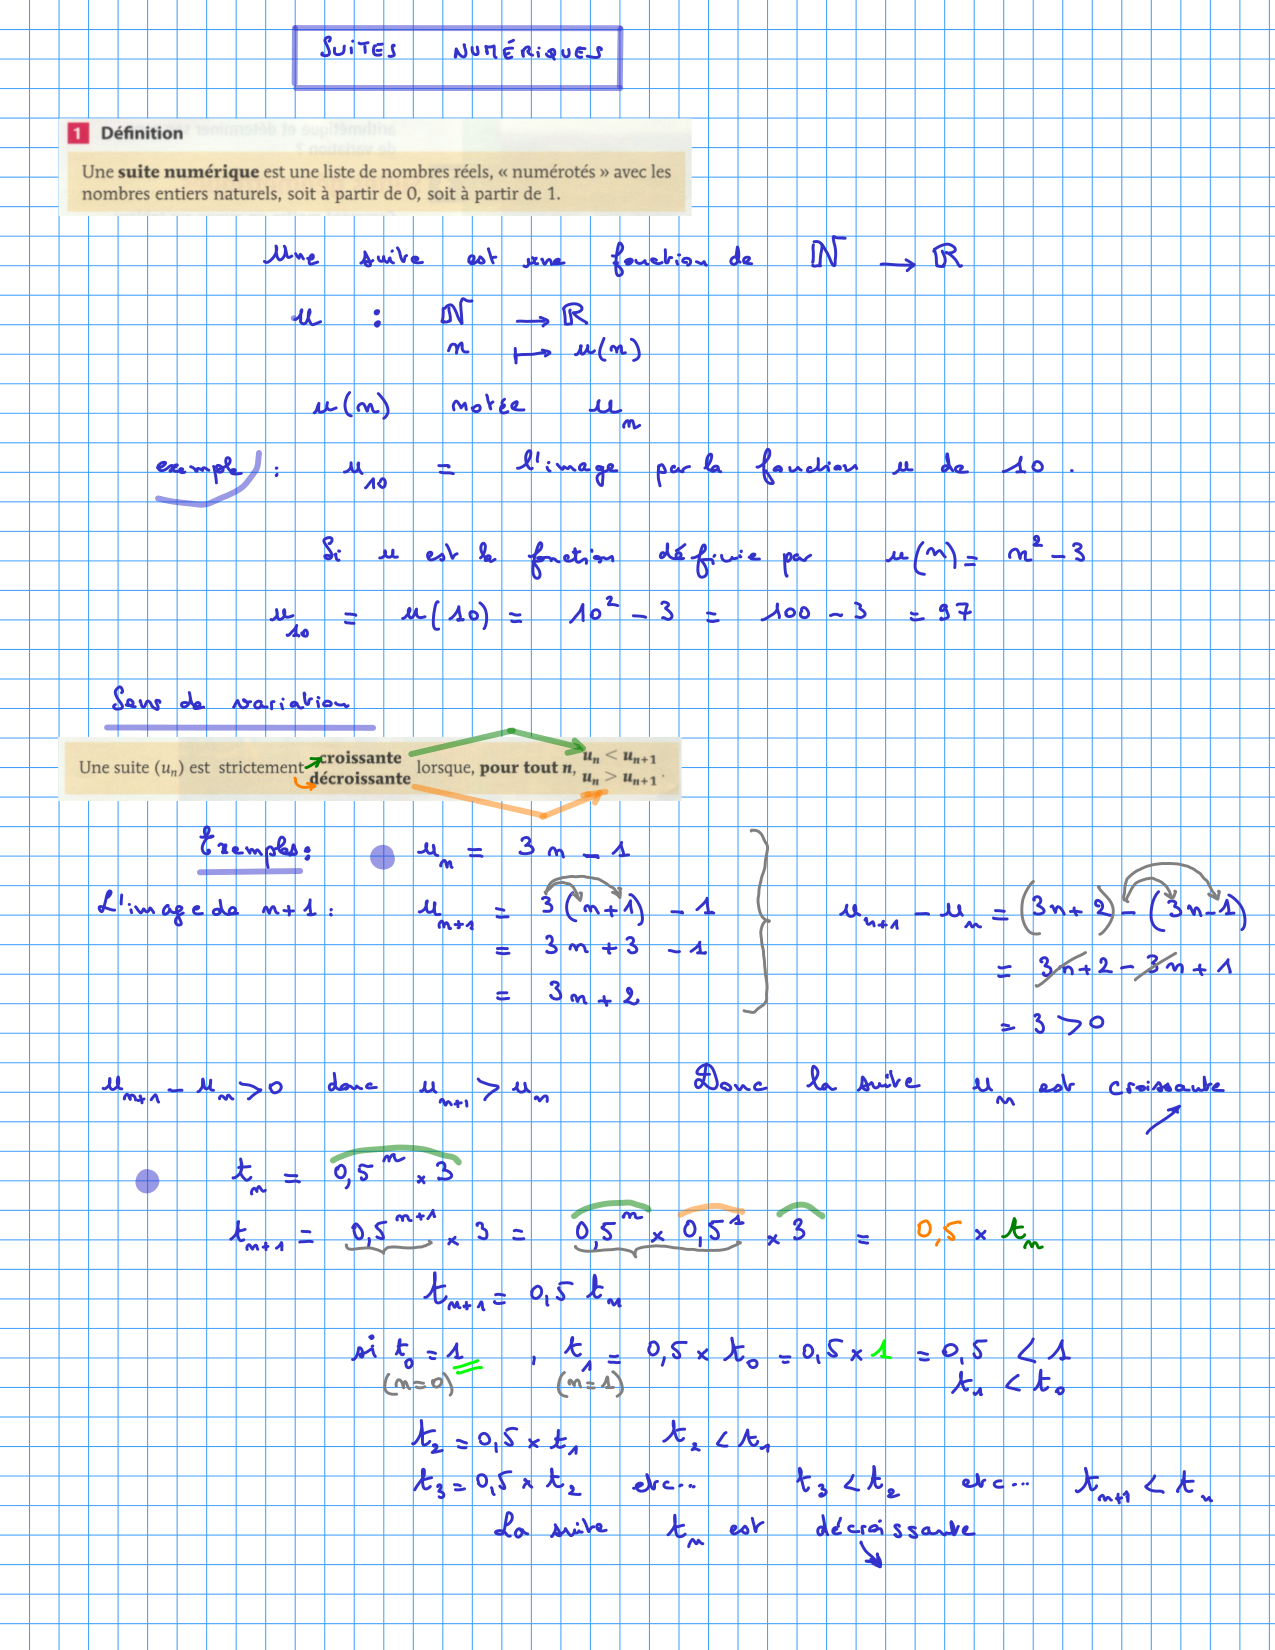 SUITES NUMÉRIQUES
1 Définition
Une suite numérique est une liste de nombres réels, « numérotés » avec les
nombres entiers naturels, soit à partir de 0, soit à partir de 1.
Une suite est une fonction de ℕ → ℝ
u : ℕ → ℝ
n ↦ u(n)
u(n) notée u_n
exemple : u_10 = l'image par la fonction u de 10.
Si u est la fonction définie par u(n) = n² - 3
u_10 = u(10) = 10² - 3 = 100 - 3 = 97
Sens de variation
Une suite (u_n) est strictement croissante / décroissante lorsque, pour tout n, u_n < u_{n+1} / u_n > u_{n+1}.
Exemples: u_n = 3n - 1
L'image de n+1 : u_{n+1} = 3(n+1) - 1
= 3n + 3 - 1
= 3n + 2
u_{n+1} - u_n = (3n+2) - (3n-1)
= 3n + 2 - 3n + 1
= 3 > 0
u_{n+1} - u_n > 0 donc u_{n+1} > u_n Donc la suite u_n est croissante
t_n = 0,5^n × 3
t_{n+1} = 0,5^{n+1} × 3 = 0,5^n × 0,5^1 × 3 = 0,5 × t_n
t_{n+1} = 0,5 t_n
si t_0 = 1 , t_1 = 0,5 × t_0 = 0,5 × 1 = 0,5 < 1
(n=0) (n=1) t_1 < t_0
t_2 = 0,5 × t_1 t_2 < t_1
t_3 = 0,5 × t_2 etc... t_3 < t_2 etc... t_{n+1} < t_n
La suite t_n est décroissante